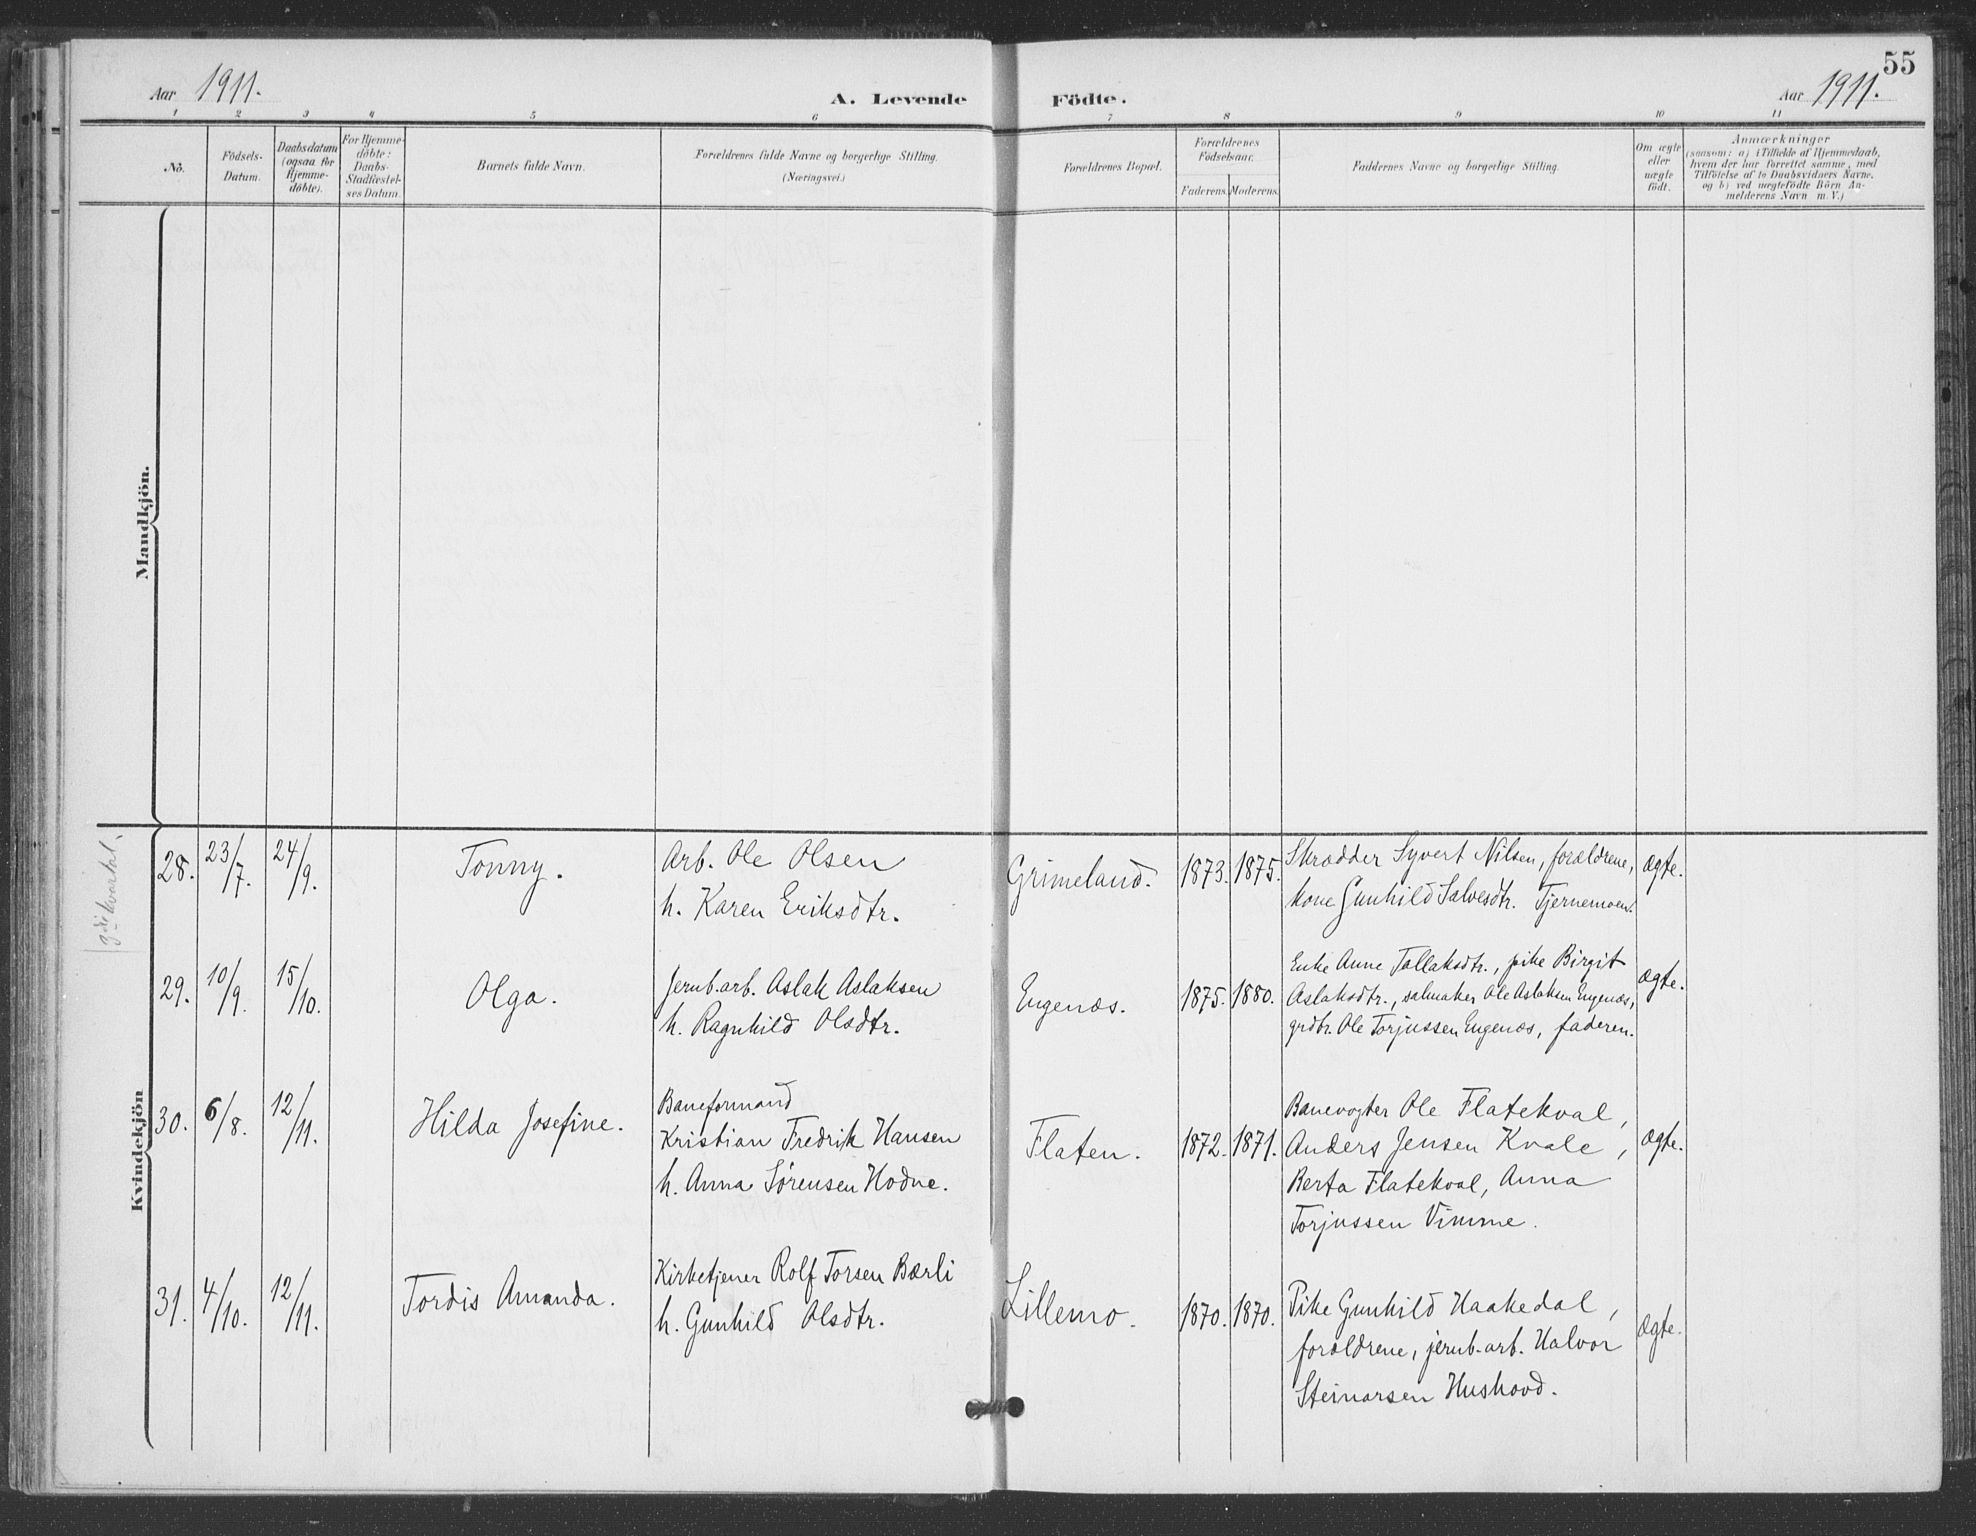 55
Aar 1911.
A. Levende Födte.
Aar 1911.
1 2 3 4 5 6 7 8 9 10 11
No.
Födsels-
Datum.
Daabsdatum
(ogsaa for
Hjemme-
döbte).
For Hjemme-
döbte:
Daabs-
Stadfæstel-
ses Datum.
Barnets fulde Navn.
Forældrenes fulde Navne og borgerlige Stilling.
(Næringsvei.)
Forældrenes Bopæl.
Forældrenes
Födselsaar.
Faderens. Moderens.
Faddernes Navne og borgerlige Stilling.
Om ægte
eller
uægte
födt.
Anmærkninger
(saasom: a) i Tilfælde af Hjemmedaab,
hvem der har forrettet samme, med
Tilföielse af to Daabsvidners Navne.
og b) ved uægtefödte Börn An-
melderens Navn m. V.)
Mandkjön.
Kvindekjön
28. 23/7. 24/9. Tonny.
Arb. Ole Olsen
h. Karen Eriksdtr.
Grimeland. 1873. 1875.
Skrædder Syvert Nilsen, forældrene,
kone Gunhild Salvesdtr. Tjernemoen.
ægte.
29. 10/9. 15/10. Olga.
Jernb.arb. Aslak Aslaksen
h. Ragnhild Olsdtr.
Engenæs. 1875. 1880.
Enke Anne Tallaksdtr., pike Birgit
Aslaksdtr., salmaker Ole Aslaksen Engenæs,
grdbr. Ole Torjussen Engenæs, faderen.
ægte.
30. 6/8. 12/11. Hilda Josefine.
Baneformand
Kristian Fredrik Hansen
h. Anna Sørensen Hodne.
Flaten. 1872. 1871.
Banevogter Ole Flatekval,
Anders Jensen Kvale,
Berta Flatekval, Anna
Torjussen Vimme.
ægte.
31. 4/10. 12/11. Tordis Amanda.
Kirketjener Rolf Torsen Bærli
h. Gunhild Olsdtr.
Lillemo. 1870. 1870.
Pike Gunhild Haakedal,
forældrene, jernb.arb. Halvor
Steinarsen Hushovd.
ægte.